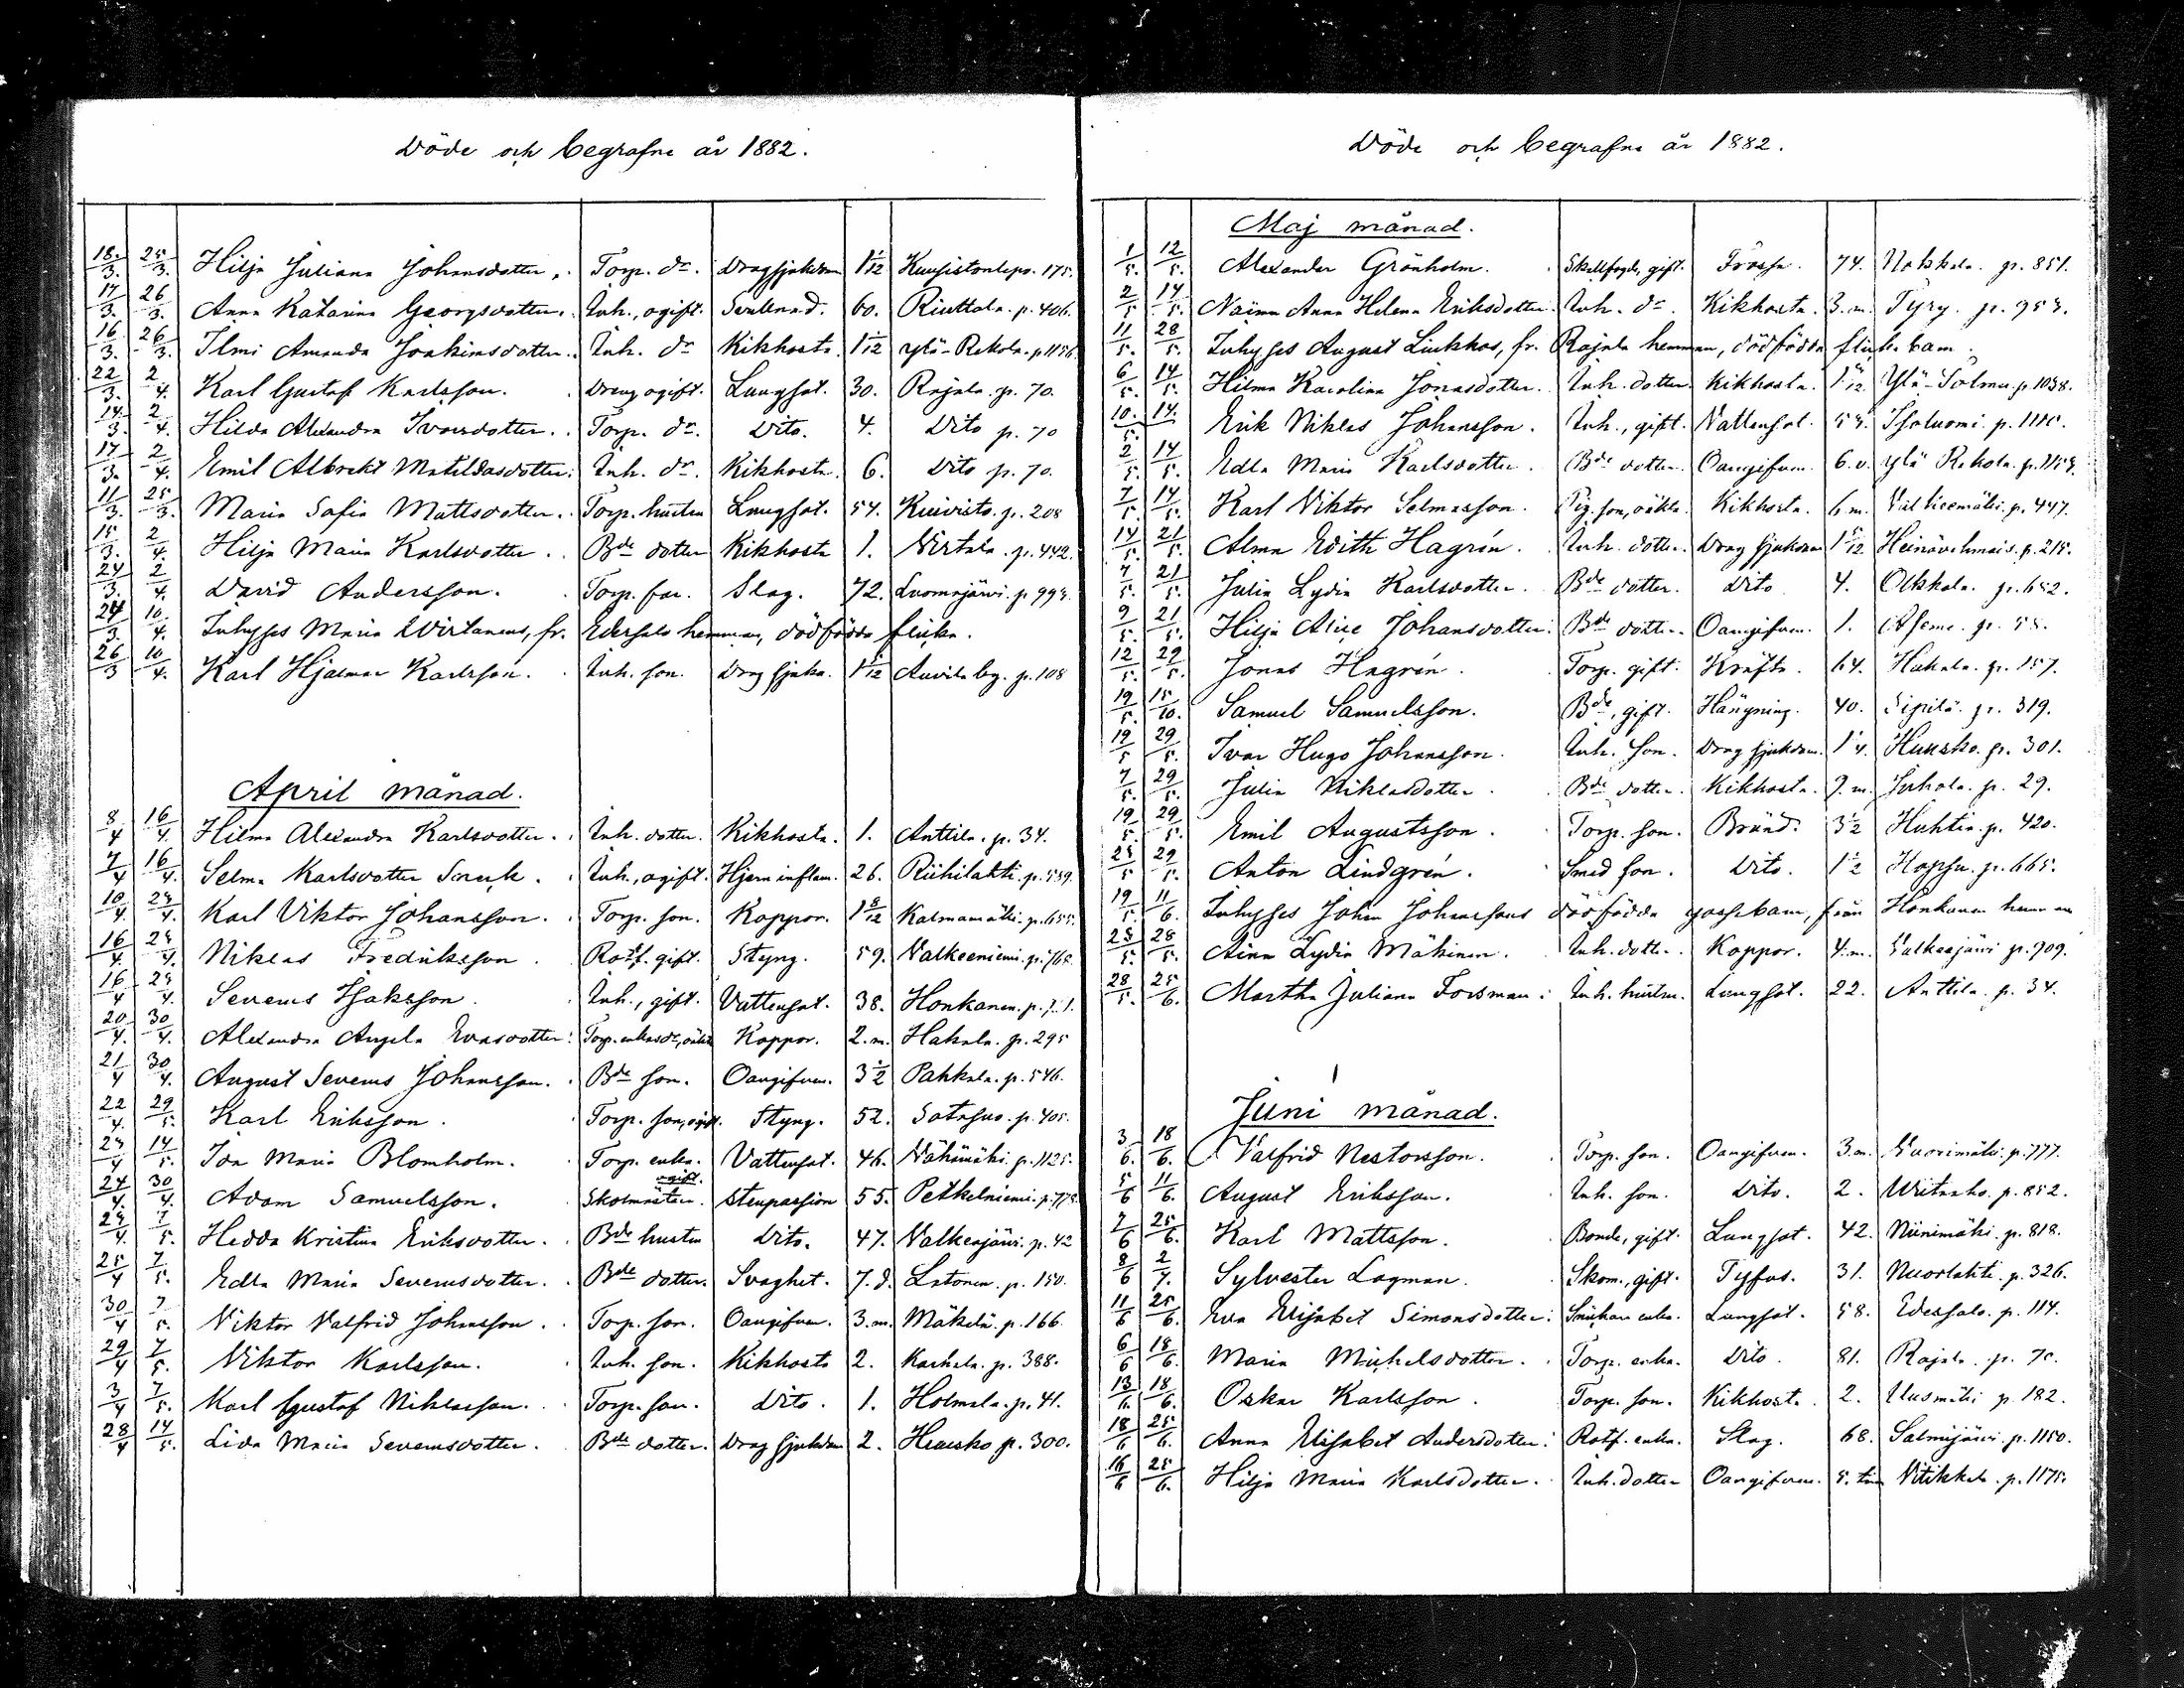 Döde och begrafne år 1882.
18/3. 25/3. Hilja Juliana Johansdotter. Torp. dr. Dragsjukdom 1 1/12 Kuusistonlepo. 175.
17/3. 26/3. Anna Katarina Georgsdotter. Inh., ogift. 60. Riuttala. p. 406.
16/3. 26/3. Ilmi Amanda Joakimsdotter. Inh. dr Kikhosta 1 1/12 Ylä-Rekola. p. 1156
22/3. 2/4. Karl Gustaf Karlsson. Dreng ogift. Lungsot. 30. Rajala. p. 70.
14/3. 2/4. Hilda Alexandra Ivarsdotter. Torp. dr. Dito. 4. Dito p. 70
17/3. 2/4. Emil Albrekt Matildasdotter. Inh. dr. Kikhosta. 6. Dito p. 70.
11/3. 25/3. Maria Sofia Mattsdotter. Torp. hustru Lungsot. 54. Kuivisto. p. 208
15/3. 2/4. Hilja Maria Karlsdotter. Bde dotter Kikhosta 1. Virtala. p. 442.
24/3. 2/4. David Andersson. Torp. far. Slag. 72. Luomajärvi. p. 993.
24/3. 10/4. Inhysses Maria Wirtanens, fr. Edessalo hemman, dödfödda flicka.
26/3 10/4. Karl Hjalmar Karlsson. Inh. son. Drag sjukn. 1 1/12 Auvila by. p. 108
April månad.
8/4 16/4. Hilma Alexandra Karlsdotter. Inh. dotter. Kikhosta. 1. Anttila. p. 34.
7/4 16/4. Selma Karlsdotter Snuck. Inh., ogift. Hjern inflam. 26. Riihilahti. p. 539.
10/4. 23/4. Karl Viktor Johansson. Torp. son. Koppor. 1 8/12 Kalmamäki. p. 655.
16/4. 23/4. Niklas Fredriksson. Rotf. gift. Styng. 59. Valkeeniemi. p. 768.
16/4 23/4. Severus Isaksson. Inh., gift. Vattensot. 38. Honkanen. p.
20/4. 30/4. Alexandra Angela Evasdotter. Torp. enkas dr, oäkta Koppor. 2. m. Hakala. p. 295
21/4 30/4. August Severus Johansson. Bde son. Oangifven. 3 1/2 Pahkala. p. 546.
22/4. 29/5. Karl Eriksson. Torp. son, ogift. Styng. 52. Satasuo. p. 405.
23/4 14/5. Ida Maria Blomholm. Torp. enka. Vattensot. 46. Vähämäki. p. 1125.
24/4. 30/4. Adam Samuelsson. Skolmästar. ogift. Stenpassion 55. Petkelniemi. p. 778.
23/4. 7/5. Hedda Kristina Eriksdotter. Bde hustru Dito. 47. Valkeajärvi. p. 42
25/4 7/5. Edla Maria Severusdotter. Bde dotter. Svaghet. 7. d. Latonen. p. 150.
30/4 7/5. Viktor Valfrid Johansson. Torp. son. Oangifven. 3. m. Mäkelä. p. 166.
29/4 7/5. Viktor Karlsson. Inh. son. Kikhosta 2. Karhula. p. 388.
3/4 7/5. Karl Gustaf Niklasson. Torp. son. Dito. 1. Holmala. p. 41.
28/4 14/5. Lida Maria Severusdotter. Bde dotter. Drag sjukdom 2. Hensko p. 300.
Döde och begrafne år 1882.
Maj månad.
1/5. 12/5. Alexander Grönholm. gift. Frossa. 74. Nokkala. p. 851.
2/5 14/5. Naima Anna Helena Eriksdotter Inh. dr. Kikhosta. 3. m. Tyry. p. 953.
11/5. 28/5. Inhysses August Liukkos, fr. Rajala hemman, dödfödda flicke barn.
6/5. 14/5. Hilma Karolina Jonasdotter. Inh. dotter. Kikhosta. Ylä-Solmu. p. 1038.
10/5. 14. Erik Niklas Johansson. Inh., gift. Vattensot. 53. Isoluomi. p. 1110.
2/5. 14/5. Edla Maria Karlsdotter. Bde dotter. Oangifven. 6. v. Ylä Rekola. p. 1153.
7/5. 14/5. Karl Viktor Selmasson. Pig. son, oäkta. Kikhosta. 6. m. p. 447.
14/5. 21/5. Alma Edith Hagrén. Inh. dotter. Drag sjukdom 1 5/12 p. 215.
7/5. 21/5. Julia Lydia Karlsdotter. Bde dotter. Dito 4. Olkkola. p. 652.
9/5. 21/5. Hilja Alice Johansdotter. Bde dotter. Oangifven. 1. p. 58.
12/5. 29/5. Jonas Hagrén. Torp. gift. Kräfta. 64. Hakala. p. 157.
19/5. 15/10. Samuel Samuelsson. Bde, gift. Hängning. 40. Sipilä. p. 319.
19/5 29/5. Ivar Hugo Johansson. Inh. son. Drag sjukdom. 1 1/4. Hunsko. p. 301.
7/5. 29/5. Julia Niklasdotter. Bde dotter. Kikhosta. 9. m. Juhola. p. 29.
19/5. 29/5. Emil Augustsson. Torp. son. Bränd. 3 1/2 Huhtia. p. 420.
25/5 29/5. Anton Lindgrén. Smed son. Dito. 1 1/2 Hopsu. p. 665.
19/5. 11/6. Inhysses Johan Johanssons dödfödda gossebarn, från Honkanen hemman
25/5. 28/5. Aina Lydia Mäkinen. Inh. dotter. Koppor. 4. m. Valkeajärvi p. 909.
28/5. 25/6. Martha Juliana Forsman. Inh. hustru. Lungsot. 22. Anttila. p. 34.
Juni månad.
3/6. 18/6. Valfrid Nestorsson. Torp. son. Oangifven. 3. m. Vuorimäki. p. 777.
5/6 11/6. August Eriksson. Inh. son. Dito. 2. p. 852.
7/6 25/6. Karl Mattsson. Bonde, gift. Lungsot. 42. Niinimäki. p. 818.
8/6 2/7. Sylvester Lagman. Skom., gift. Tyfus. 31. Nuorlahti. p. 326.
11/6 25/6. Eva Elisabet Simonsdotter. enka. Lungsot. 58. Edessalo. p. 114.
6/6 18/6. Maria Michelsdotter. Torp. enka. Dito. 81. Rajala. p. 70.
13/6. 18/6. Oskar Karlsson. Torp. son. Kikhosta. 2. Uusmäki p. 182.
18/6 25/6. Anna Elisabet Andersdotter. Rotf. enka. Slag. 68. Salmijärvi. p. 1150.
16/6 25/6. Hilja Maria Karlsdotter. Inh. dotter Oangifven. 5. tim Vitikkala. p. 1175.